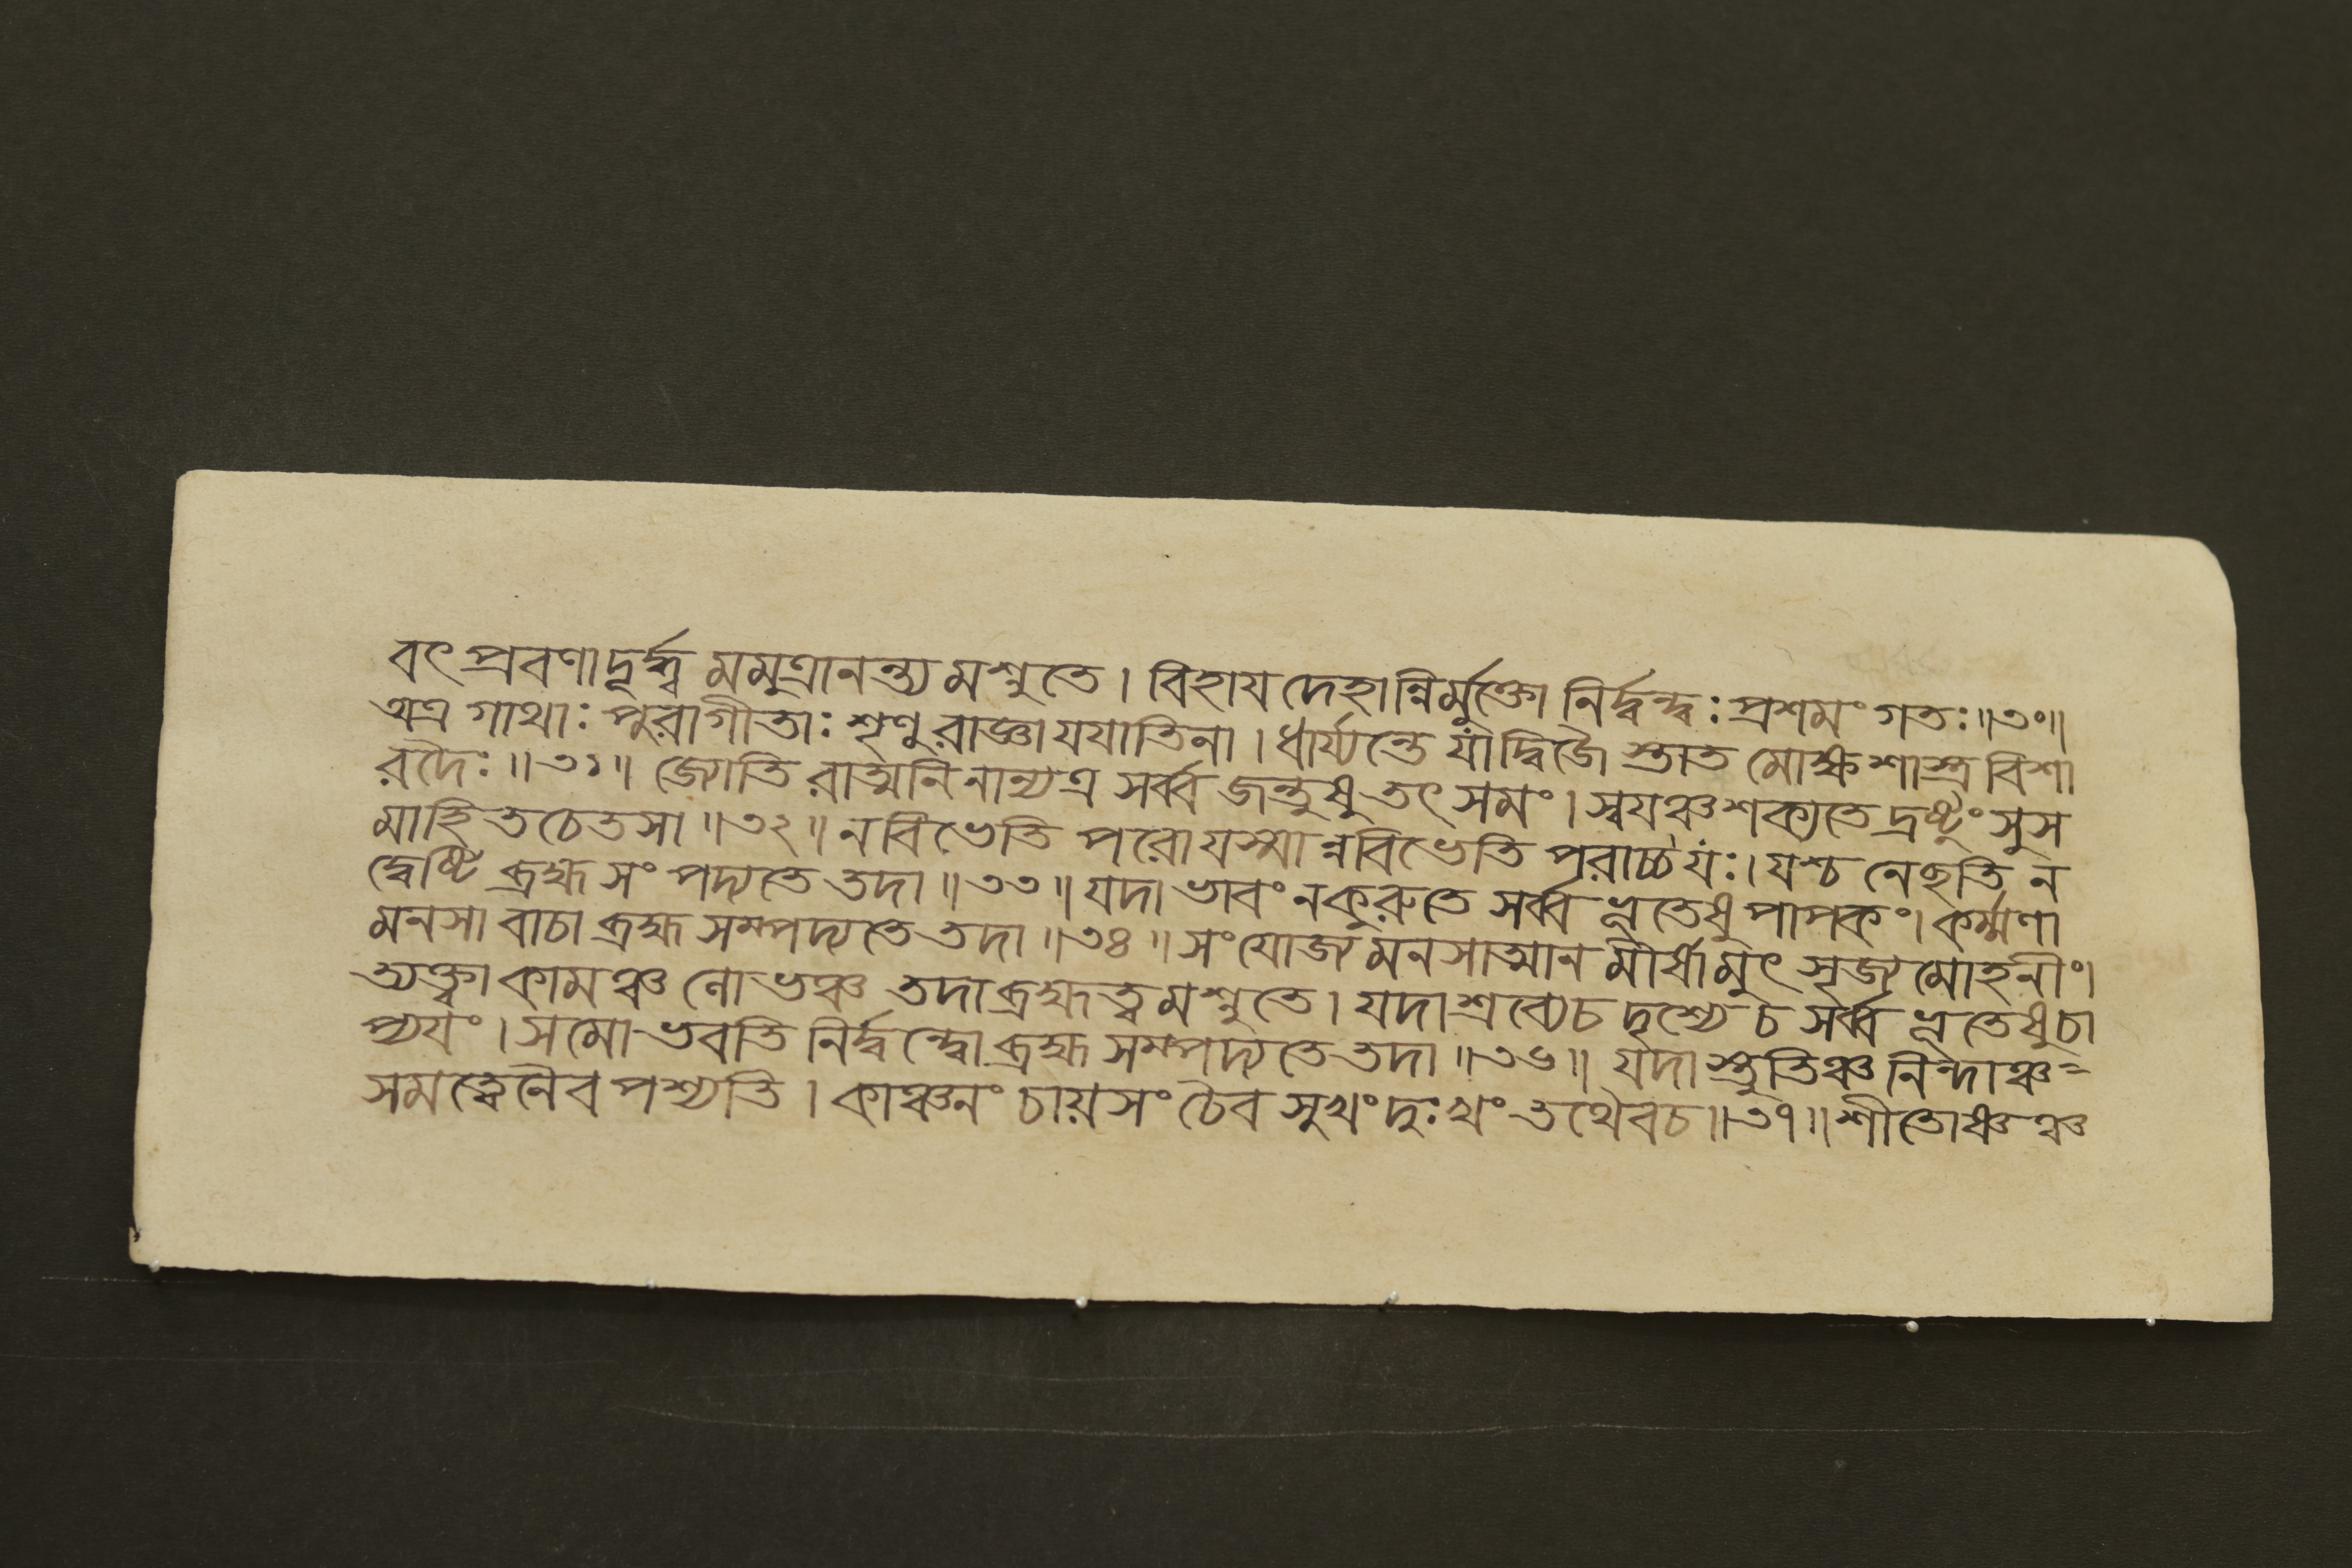 বৎ প্রবণাদূর্দ্ধ্ব মমুত্রানন্ত্য মশ্নুতে । বিহায দেহান্নির্মুক্তো নির্দ্বন্দ্বঃ প্রশমং গতঃ ॥৩০॥
অত্র গাথাঃ পুরাগীতাঃ শৃণু রাজ্ঞা যযাতিনা । ধার্য্যন্তে যাঁদ্বিজৈ স্তাত মোক্ষ শাস্ত্র বিশা
রদৈঃ ॥৩১॥ জ্যোতি রাত্মনি নান্যত্র সর্ব্ব জন্তুষু তৎ সমং । স্বযঞ্চ শক্যতে দ্রষ্টুং সুস
মাহিতচেতসা ॥৩২॥ ন বিভেতি পরো যস্মা ন্নবিভেতি পরাচ্চ যঃ । যশ্চ নেছতি ন
দ্বেষ্টি ব্রহ্ম সং পদ্যতে তদা ॥৩৩॥ যদা ভাবং ন কুরুতে সর্ব্ব ভূতেষু পাপকং । কর্ম্মণা
মনসা বাচা ব্রহ্ম সম্পদ্যতে তদা ॥৩৪॥ সংযোজ্য মনসাত্মান মীর্ষামুৎ সৃজ্য মোহনীং ।
ত্যক্ত্বা কামঞ্চ লোভঞ্চ তদা ব্রহ্মত্ব মশ্নুতে । যদা শ্রব্যেচ দৃশ্যে চ সর্ব্ব ভূতেষু চা
প্যযং । সমো ভবতি নির্দ্বন্দ্বো ব্রহ্ম সম্পদ্যতে তদা ॥৩৬॥ যদা স্তুতিঞ্চ নিন্দাঞ্চ=
সমত্বেনৈব পশ্যতি । কাঞ্চনং চায়সং চৈব সুখং দুঃখং তথৈবচ ॥৩৭॥ শীতোষ্ণঞ্চ